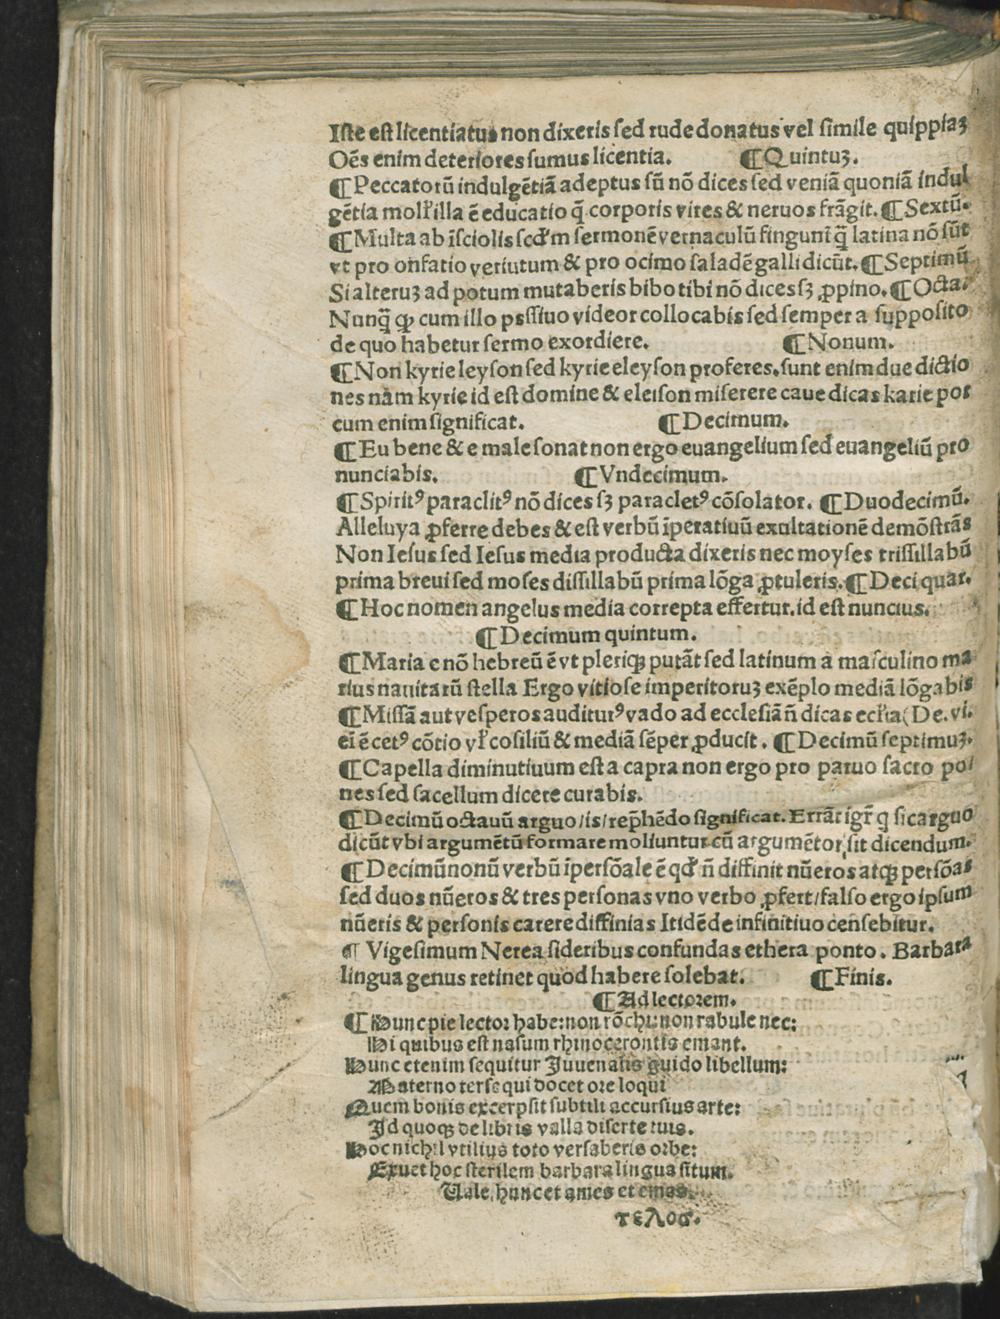 Iste est licentiatus non dixeris sed rude donatus vel simile quippiaꝫ
Oẽs enim deteriores sumus licentia. ¶Quintuꝫ.
¶Peccatorũ indulgẽtiã adeptus sũ nõ dices sed veniã quoniã indul
gẽtia moll'illa ẽ educatio q̃ corporis vires & neruos frãgit. ¶Sextũ.
¶Multa ab ĩsciolis scd'm sermonẽ vernaculũ fingunt̃ q̃ latina nõ sũt
vt pro onfatio veriutum & pro ocimo saladẽ galli dicũt. ¶Septimũ
Si alteruꝫ ad potum mutaberis bibo tibi nõ dices sꝫ ꝓpino. ¶Octa.
Nunq̃ ꝙ cum illo pssiuo videor collocabis sed semper a supposito
de quo habetur sermo exordiere. ¶Nonum.
¶Non kyrie leyson sed kyrie eleyson proferes. sunt enim due dictio
nes nam kyrie id est domine & eleison miserere caue dicas karie por
cum enim significat. ¶Decimum.
¶Eu bene & e male sonat non ergo euangelium sed euangeliũ pro
nunciabis. ¶Vndecimum.
¶Spiritꝰ paraclitꝰ nõ dices sꝫ paracletꝰ cõsolator. ¶Duodecimũ.
Alleluya ꝓferre debes & est verbũ ĩperatiuũ exultationẽ demõstrãs
Non Iesus sed Iesus media producta dixeris nec moyses trissillabũ
prima breui sed moses dissillabũ prima lõga ꝓtuleris. ¶Deci quar.
¶Hoc nomen angelus media correpta effertur. id est nuncius.
¶Decimum quintum.
¶Maria e nõ hebreũ ẽ vt pleriqꝫ putãt sed latinum a masculino ma
rius nauitarũ stella Ergo vitiose imperitoruꝫ exẽplo mediã lõgabis
¶Missã aut vesperos auditurꝰ vado ad ecclesiã ñ dicas De. vi.
ei ẽ cetꝰ cõtio vl' cosiliũ & mediã sẽper ꝓducit. ¶Decimũ septimuꝫ.
¶Capella diminutiuum est a capra non ergo pro paruo sacro po
nes sed sacellum dicere curabis.
¶Decimũ octauũ arguo/is/rep̃hẽdo significat. Errãt igr̃ q sic arguo
dicũt vbi argumẽtũ formare moliuntur cũ argumẽtor sit dicendum.
¶Decimũ nonũ verbũ ĩpersõale ẽ qd' ñ diffinit nũeros atqꝫ persõas
sed duos nũeros & tres personas vno verbo ꝓfert/falso ergo ipsum
nũeris & personis carere diffinias Itidẽ de infinitiuo censebitur.
¶ Vigesimum Nerea sideribus confundas ethera ponto. Barbara
lingua genus retinet quod habere solebat. ¶Finis.
¶Ad lectorem.
¶Hunc pie lector habe: non rõchi: non rabule nec:
Hi quibus est nasum rhinocerontis emant.
Hunc etenim sequitur Juuenalis guido libellum:
Materno terse qui docet ore loqui
Quem bonis excerpsit subtili accursius arte:
Id quoqꝫ de libris valla diserte tuis.
Hoc nichil vtilius toto versaberis orbe:
Exuet hoc sterilem barbara lingua situm.
Vale, hunc et ames et emas.
τελοσ.